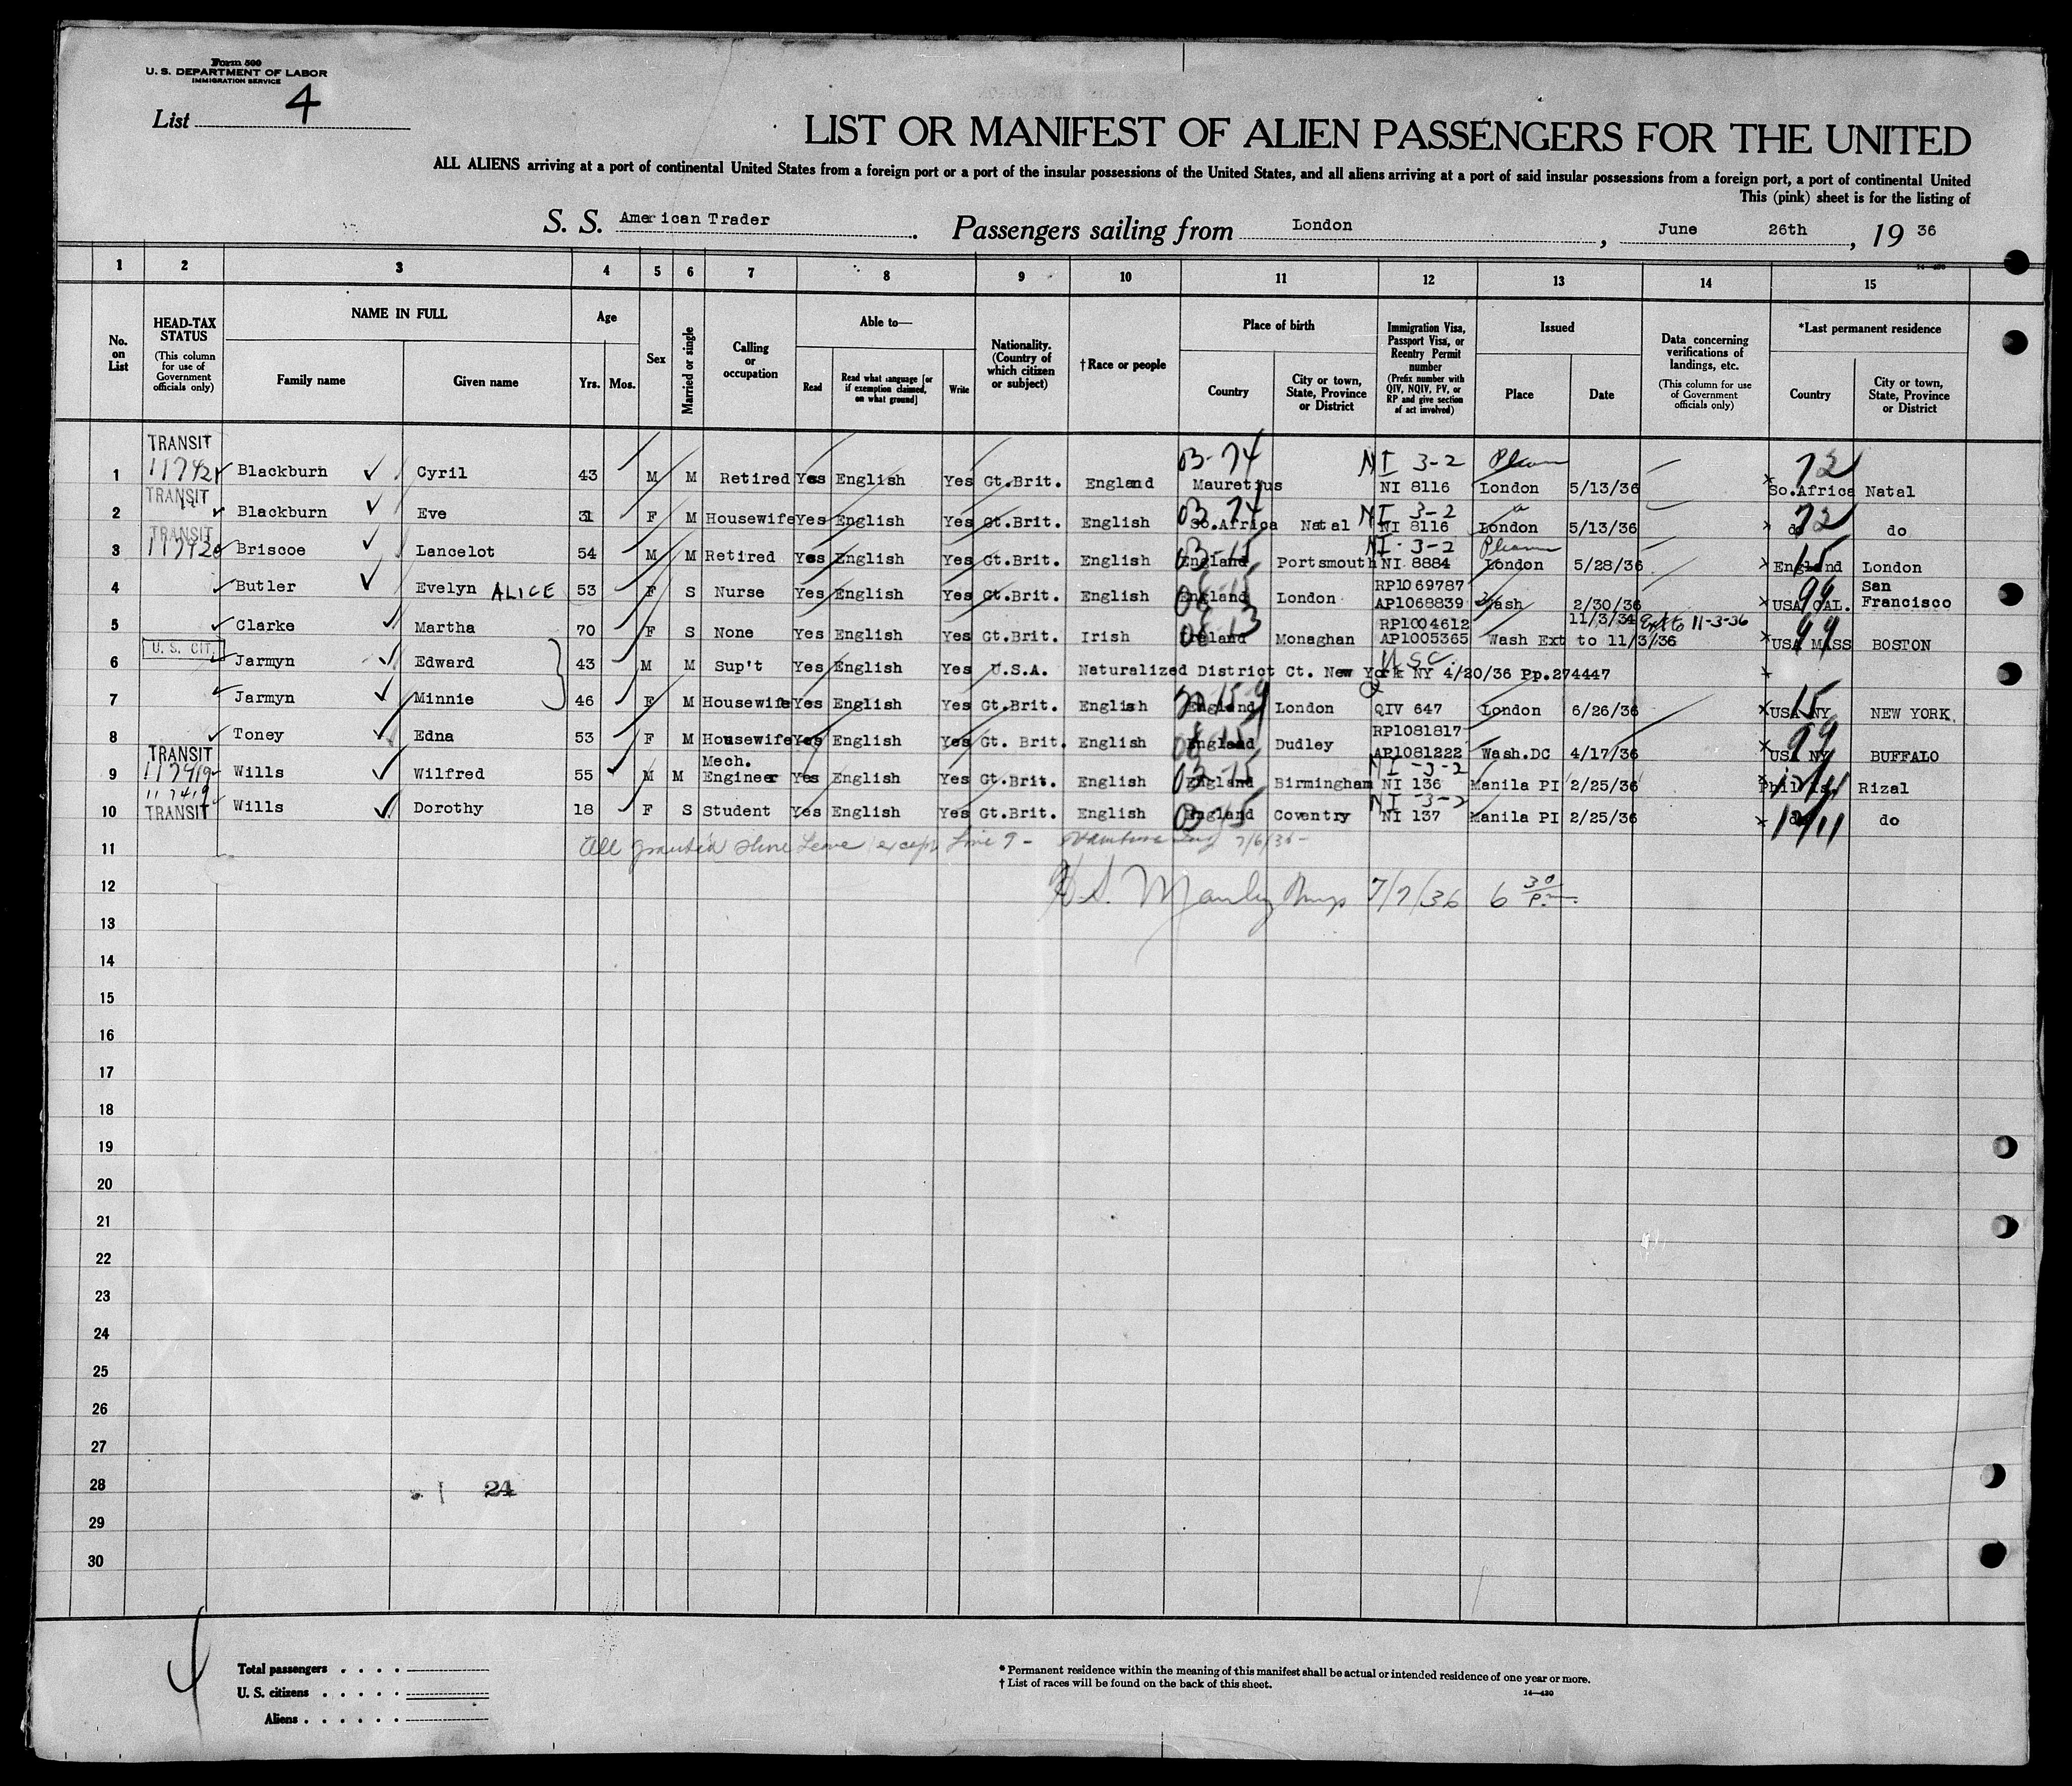 Form 500
U. S. DEPARTMENT OF LABOR
IMMIGRATION SERVICE
List 4
LIST OR MANIFEST OF ALIEN PASSENGERS FOR THE UNITED
ALL ALIENS arriving at a port of continental United States from a foreign port or a port of the insular possessions of the United States, and all aliens arriving at a port of said insular possessions from a foreign port, a port of continental United
This (pink) sheet is for the listing of
S. S. American Trader. Passengers sailing from London, June 26th, 19 36
1 2 3 4 5 6 7 8 9 10 11 12 13 14 15
No. on List
HEAD-TAX STATUS (This column for use of Government officials only)
NAME IN FULL
Family name Given name
Age
Yrs. Mos.
Sex
Married or single
Calling or occupation
Able to—
Read Read what language [or if exemption claimed, on what ground] Write
Nationality. (Country of which citizen or subject)
†Race or people
Place of birth
Country City or town, State, Province or District
Immigration Visa, Passport Visa, or Reentry Permit number (Prefix number with QIV, NQIV, PV, or RP and give section of act involved)
Issued
Place Date
Data concerning verifications of landings, etc. (This column for use of Government officials only)
*Last permanent residence
Country City or town, State, Province or District
TRANSIT 03-74 NI 3-2 72
1 Blackburn Cyril 43 M M Retired Yes English Yes Gt.Brit. England Mauretius NI 8116 London 5/13/36 So.Africa Natal
TRANSIT 03 74 NI 3-2 72
2 Blackburn Eve 31 F M Housewife Yes English Yes Gt.Brit. English So.Africa Natal NI 8116 London 5/13/36 do do
TRANSIT 03-15 NI-3-2 15
3 11742 Briscoe Lancelot 54 M M Retired Yes English Yes Gt.Brit. English England Portsmouth NI 8884 London 5/28/36 England London
4 Butler Evelyn ALICE 53 F S Nurse Yes English Yes Gt.Brit. English England London RP1069787 AP1068839 Wash 2/30/36 USA CAL. San Francisco
5 Clarke Martha 70 F S None Yes English Yes Gt.Brit. Irish Ireland Monaghan RP1004612 AP1005365 Wash Ext to 11/3/36 11/3/34 Ext to 11-3-36 USA MASS BOSTON
U. S. CIT.
6 Jarmyn Edward 43 M M Sup't Yes English Yes U.S.A. Naturalized District Ct. New York NY 4/20/36 Pp.274447
USC
7 Jarmyn Minnie 46 F M Housewife Yes English Yes Gt.Brit. English England London QIV 647 London 6/26/36 USA NY NEW YORK.
8 Toney Edna 53 F M Housewife Yes English Yes Gt. Brit. English England Dudley RP1081817 AP1081222 Wash.DC 4/17/36 USA NY BUFFALO
TRANSIT 03-15 NI-3-2
9 117419 Wills Wilfred 55 M M Mech. Engineer Yes English Yes Gt.Brit. English England Birmingham NI 136 Manila PI 2/25/36 Phil Is. Rizal
117419 NI-3-2
10 TRANSIT Wills Dorothy 18 F S Student Yes English Yes Gt.Brit. English England Coventry NI 137 Manila PI 2/25/36 do do
11 All granted shore Leave except Line 9 - 7/6/36-
12 H.S. Manley 7/7/36 6 30
13
14
15
16
17
18
19
20
21
22
23
24
25
26
27
28 24
29
30
4
Total passengers . . . .
U. S. citizens . . . . .
Aliens . . . . . .
* Permanent residence within the meaning of this manifest shall be actual or intended residence of one year or more.
† List of races will be found on the back of this sheet.
14—430